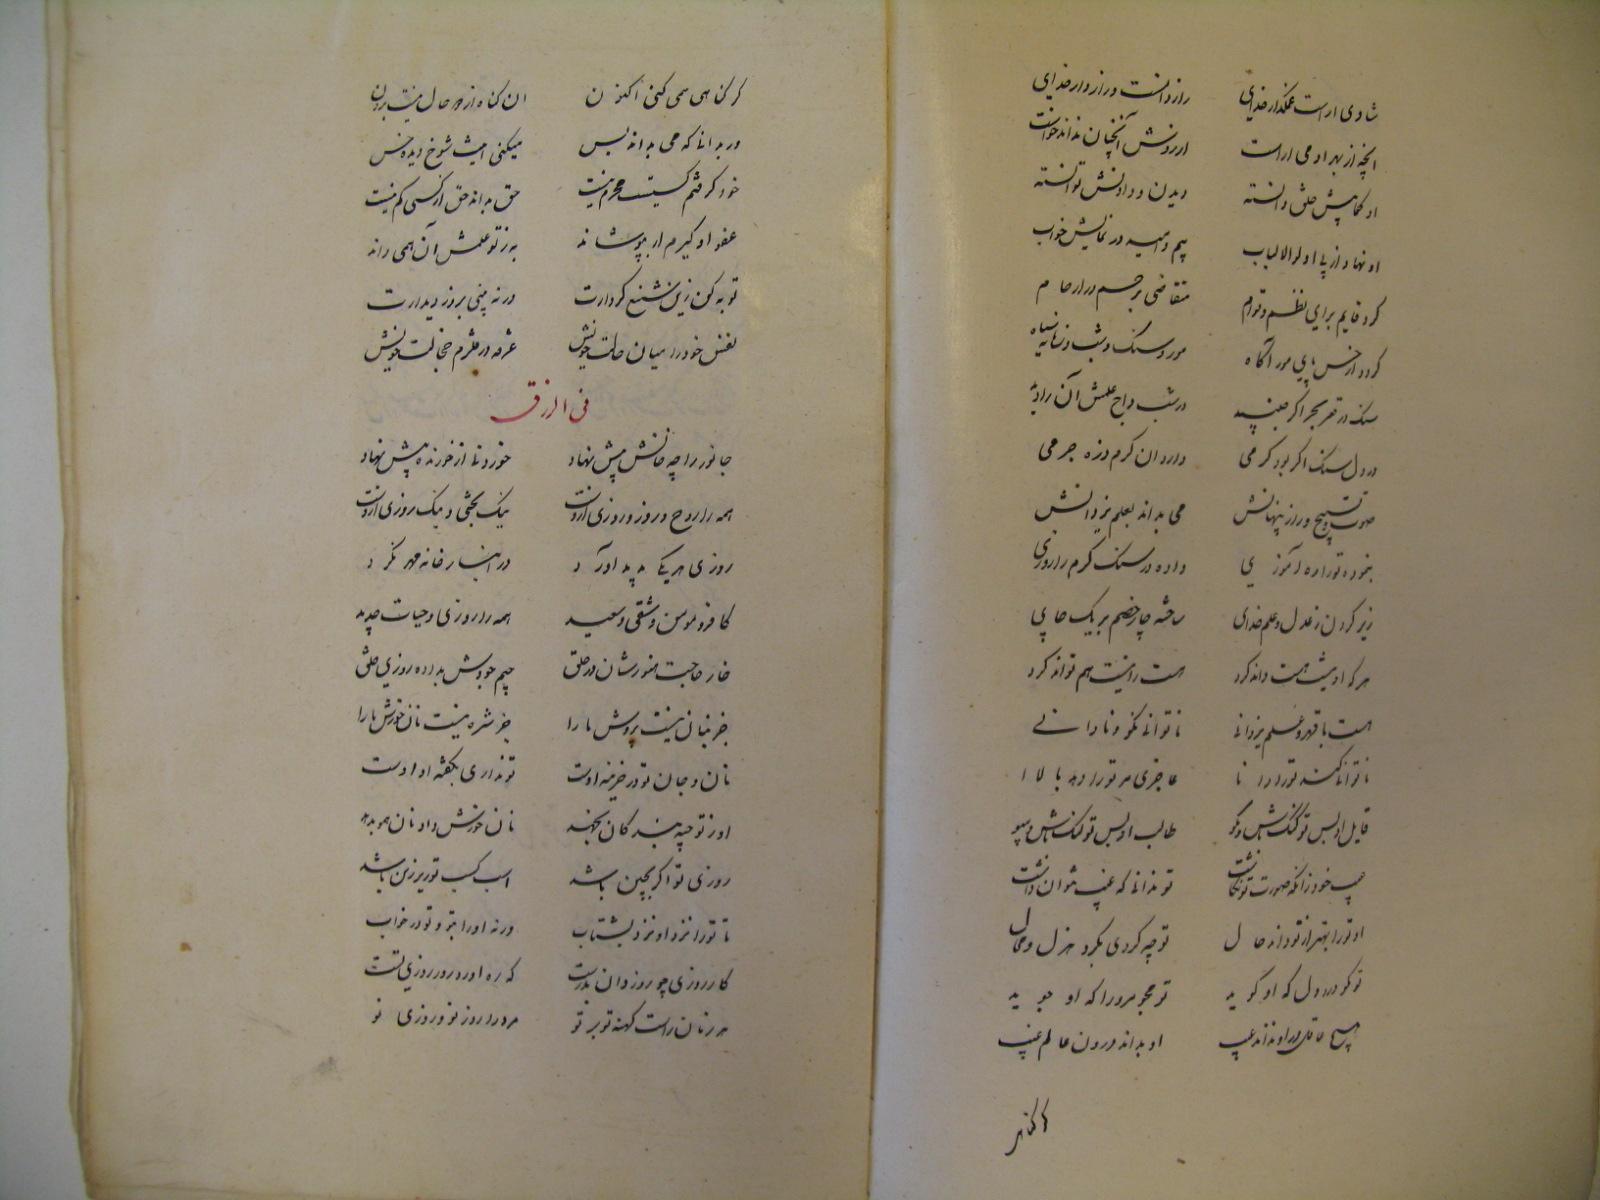 شادی ارست غمگدار خدای رازدانست و رازدار خدای
انچه از بهر ادمی اراست ارزونش آنچنان نداند خواست
او کمابیش خلق دانسته دیدن و دادنش توانسته
او نهاد از پی اولوالالباب بیم و امید در نمایش خواب
کرد قایم برای نظم و قوام متقاضی برحم در ارحام
کردد از حس پای مور آگاه مور و سنک و شب و زمانه سیاه
سنک در قعر بحر اگر جنبد در شب داج علمش آن را بیند
در دل سنک اگر بود کرمی دارد ان کرم ذره جرمی
صوت تسبیح و راز پنهانش می بداند بعلم یزدانش
بنموده تو را ره آموزی داده در سنک کرم را روزی
زیر کردن ز عدل و علم خدای ساخته چار خصم بر یک جای
هر که او نیست هست داند کرد هست را نیست هم تواند کرد
هست با قهر و علم یزدانی ناتوانی نکو و نادانی
ناتوانا کند تو را دانا عاجزی مر تورا دهد بالا
قایل او بس تو گنک باش و مگو طالب او بس تو لنک باش و مپو
عیب خود زانکه صورت تو نگاشت تو ندانی که غیب نتوان داشت
او تو را بهتر از تو داند حال تو چه کردی بکرد هزل و محال
تو مگو درد دل که او گوید تو مجو مر ورا که او جوید
هیچ عاقل در او نداند عیب او بداند درون عالم غیب
گر گناهی همی کنی اکنون ان گناه از دو حال نیست برون
ور بدانی که می بداند پس میکنی اینت شوخ دیده و خس
خود گرفتم کست محرم نیست حق بداند حق از کسی کم نیست
عفو او گیرم ار بپوشاند نه ز تو علمش آن همی راند
توبه کن زین شنیع کردارت ورنه بینی بروز دیدارت
نفس خود را میان حالت خویش غرقه در قلزم خجالت خویش
فی الرزق
جانور را چه خانش پیش نهاد خوردنی از خورنده پیش نهاد
همه را روح و روز و روزی ازوست نیک بختی و نیک روزی ازوست
روزی هر یکی پدید آورد در انبار خانه مهر نکرد
کافر و مومن و شقی و سعید همه را روزی و حیات جدید
خار حاجت هنوزشان در حلق جیم جودش بداده روزی خلق
جز بنان نیست پرورش ما را جز شره نیست نان خورش ما را
نان و جان تو در خزینه اوست تو نداری بگفته او اوست
او ز توجیه بندگان نجهد نان خورش داد نان همو بدهد
روزی تو اگر بچین باشد اسب کسب تو زیر زین باشد
تا تو را نزد او برد بشتاب ورنه او را بتو تو در خواب
کار روزی چو روز دان بدرست که ره اورد روز روزی تست
هر زمان راست کهنه نو بر تو مر ورا روز نو و روزی نو
گر گناهی